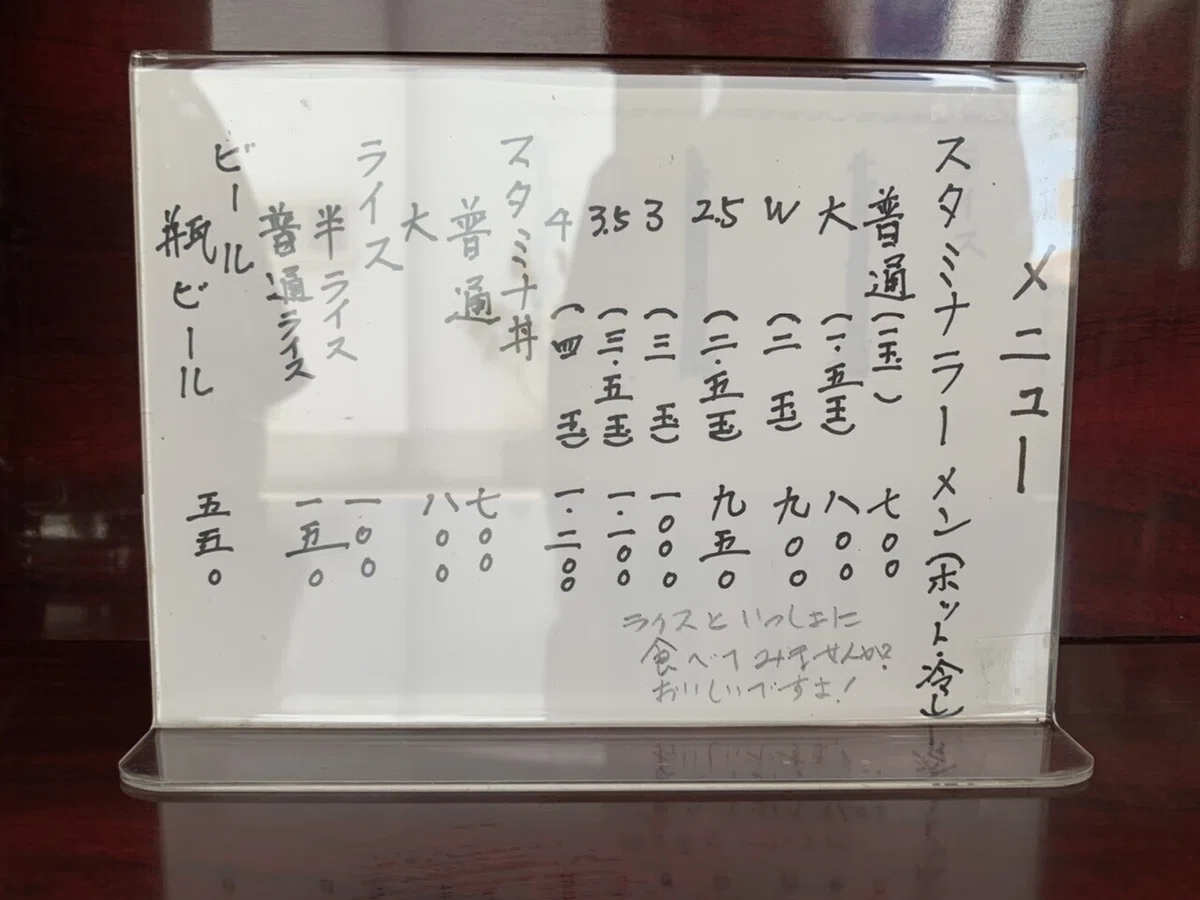 メニュー
スタミナラーメン(ホット・冷し)
普通(一玉) 七〇〇
大(一・五玉) 八〇〇
W(二玉) 九〇〇
2.5(二・五玉) 九五〇
3(三玉) 一〇〇〇
3.5(三・五玉) 一・一〇〇
4(四玉) 一・二〇〇
ライスといっしょに
食べてみませんか?
おいしいですよ!
スタミナ丼
普通 七〇〇
大 八〇〇
ライス
半ライス 一〇〇
普通ライス 一五〇
ビール
瓶ビール 五五〇